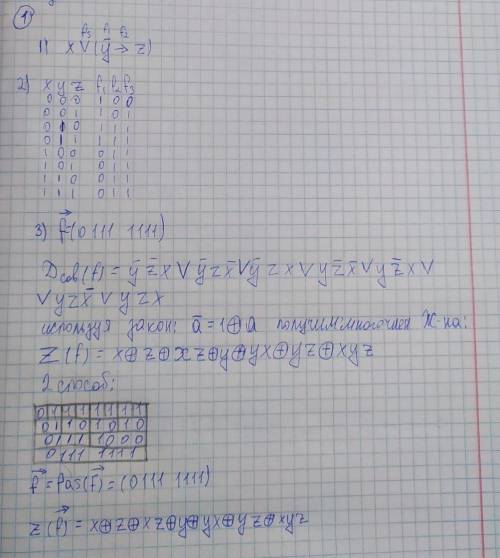 ①
f₃ f₁ f₂
1) x V (ȳ → z)
2) x y z f₁ f₂ f₃
0 0 0 1 0 0
0 0 1 1 0 1
0 1 0 1 1 1
0 1 1 1 1 1
1 0 0 0 1 1
1 0 1 0 1 1
1 1 0 0 1 1
1 1 1 0 1 1
3) f⃗=(0111 1111)
Dсов(f) = ȳ z̄ x V ȳ z x̄ V ȳ z x V y z̄ x̄ V y z̄ x V
V y z x̄ V y z x
используя закон: ā = 1⊕a получим многочлен Ж-на:
Z(f) = x⊕z⊕xz⊕y⊕yx⊕yz⊕xyz
2 способ:
0 1 1 1 1 1 1 1
0 1 1 0 1 0 1 0
0 1 1 1 1 0 0 0
0 1 1 1 1 1 1 1
f⃗ = Pas(f⃗) = (0111 1111)
Z(f⃗) = x⊕z⊕xz⊕y⊕yx⊕yz⊕xyz